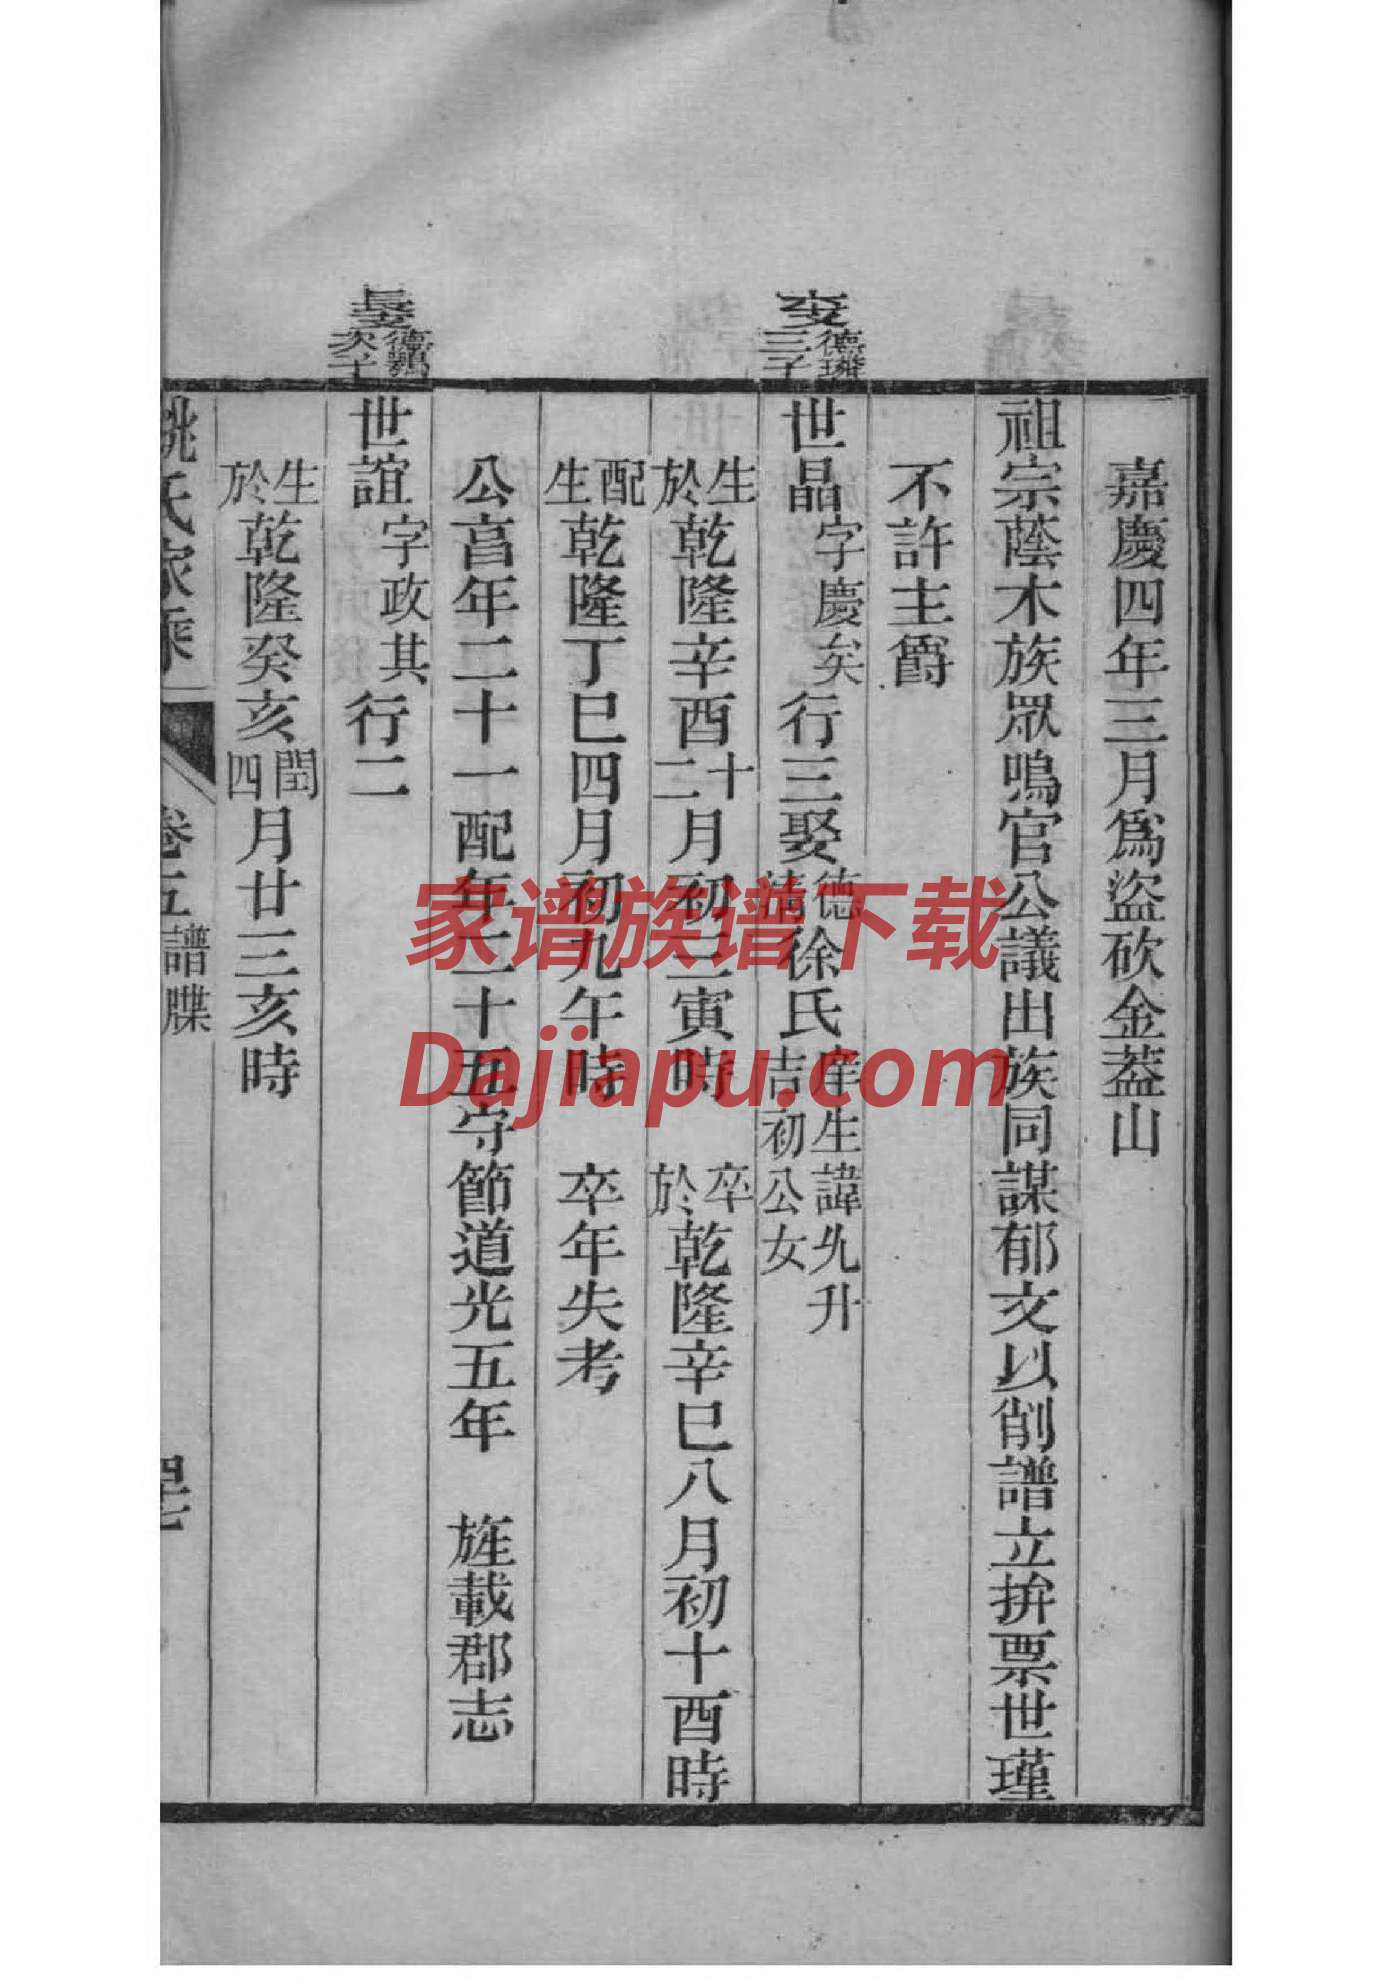 嘉慶四年三月爲盜砍金葢山
祖宗蔭木族眾鳴官公議出族同謀郁文以削譜立拚票世瑾
不許主爵
德璘
三子
世晶字慶矣行三娶德清徐氏庠生諱允升吉初公女
生於乾隆辛酉十二月初三寅時 卒於乾隆辛巳八月初十酉時
配生乾隆丁巳四月初九午時 卒年失考
公亯年二十一配年二十五守節道光五年 旌載郡志
次子
世誼字政其行二
生於乾隆癸亥閏四月廿三亥時
姚氏家乘 卷五 譜牒
家谱族谱下载
Dajiapu.com